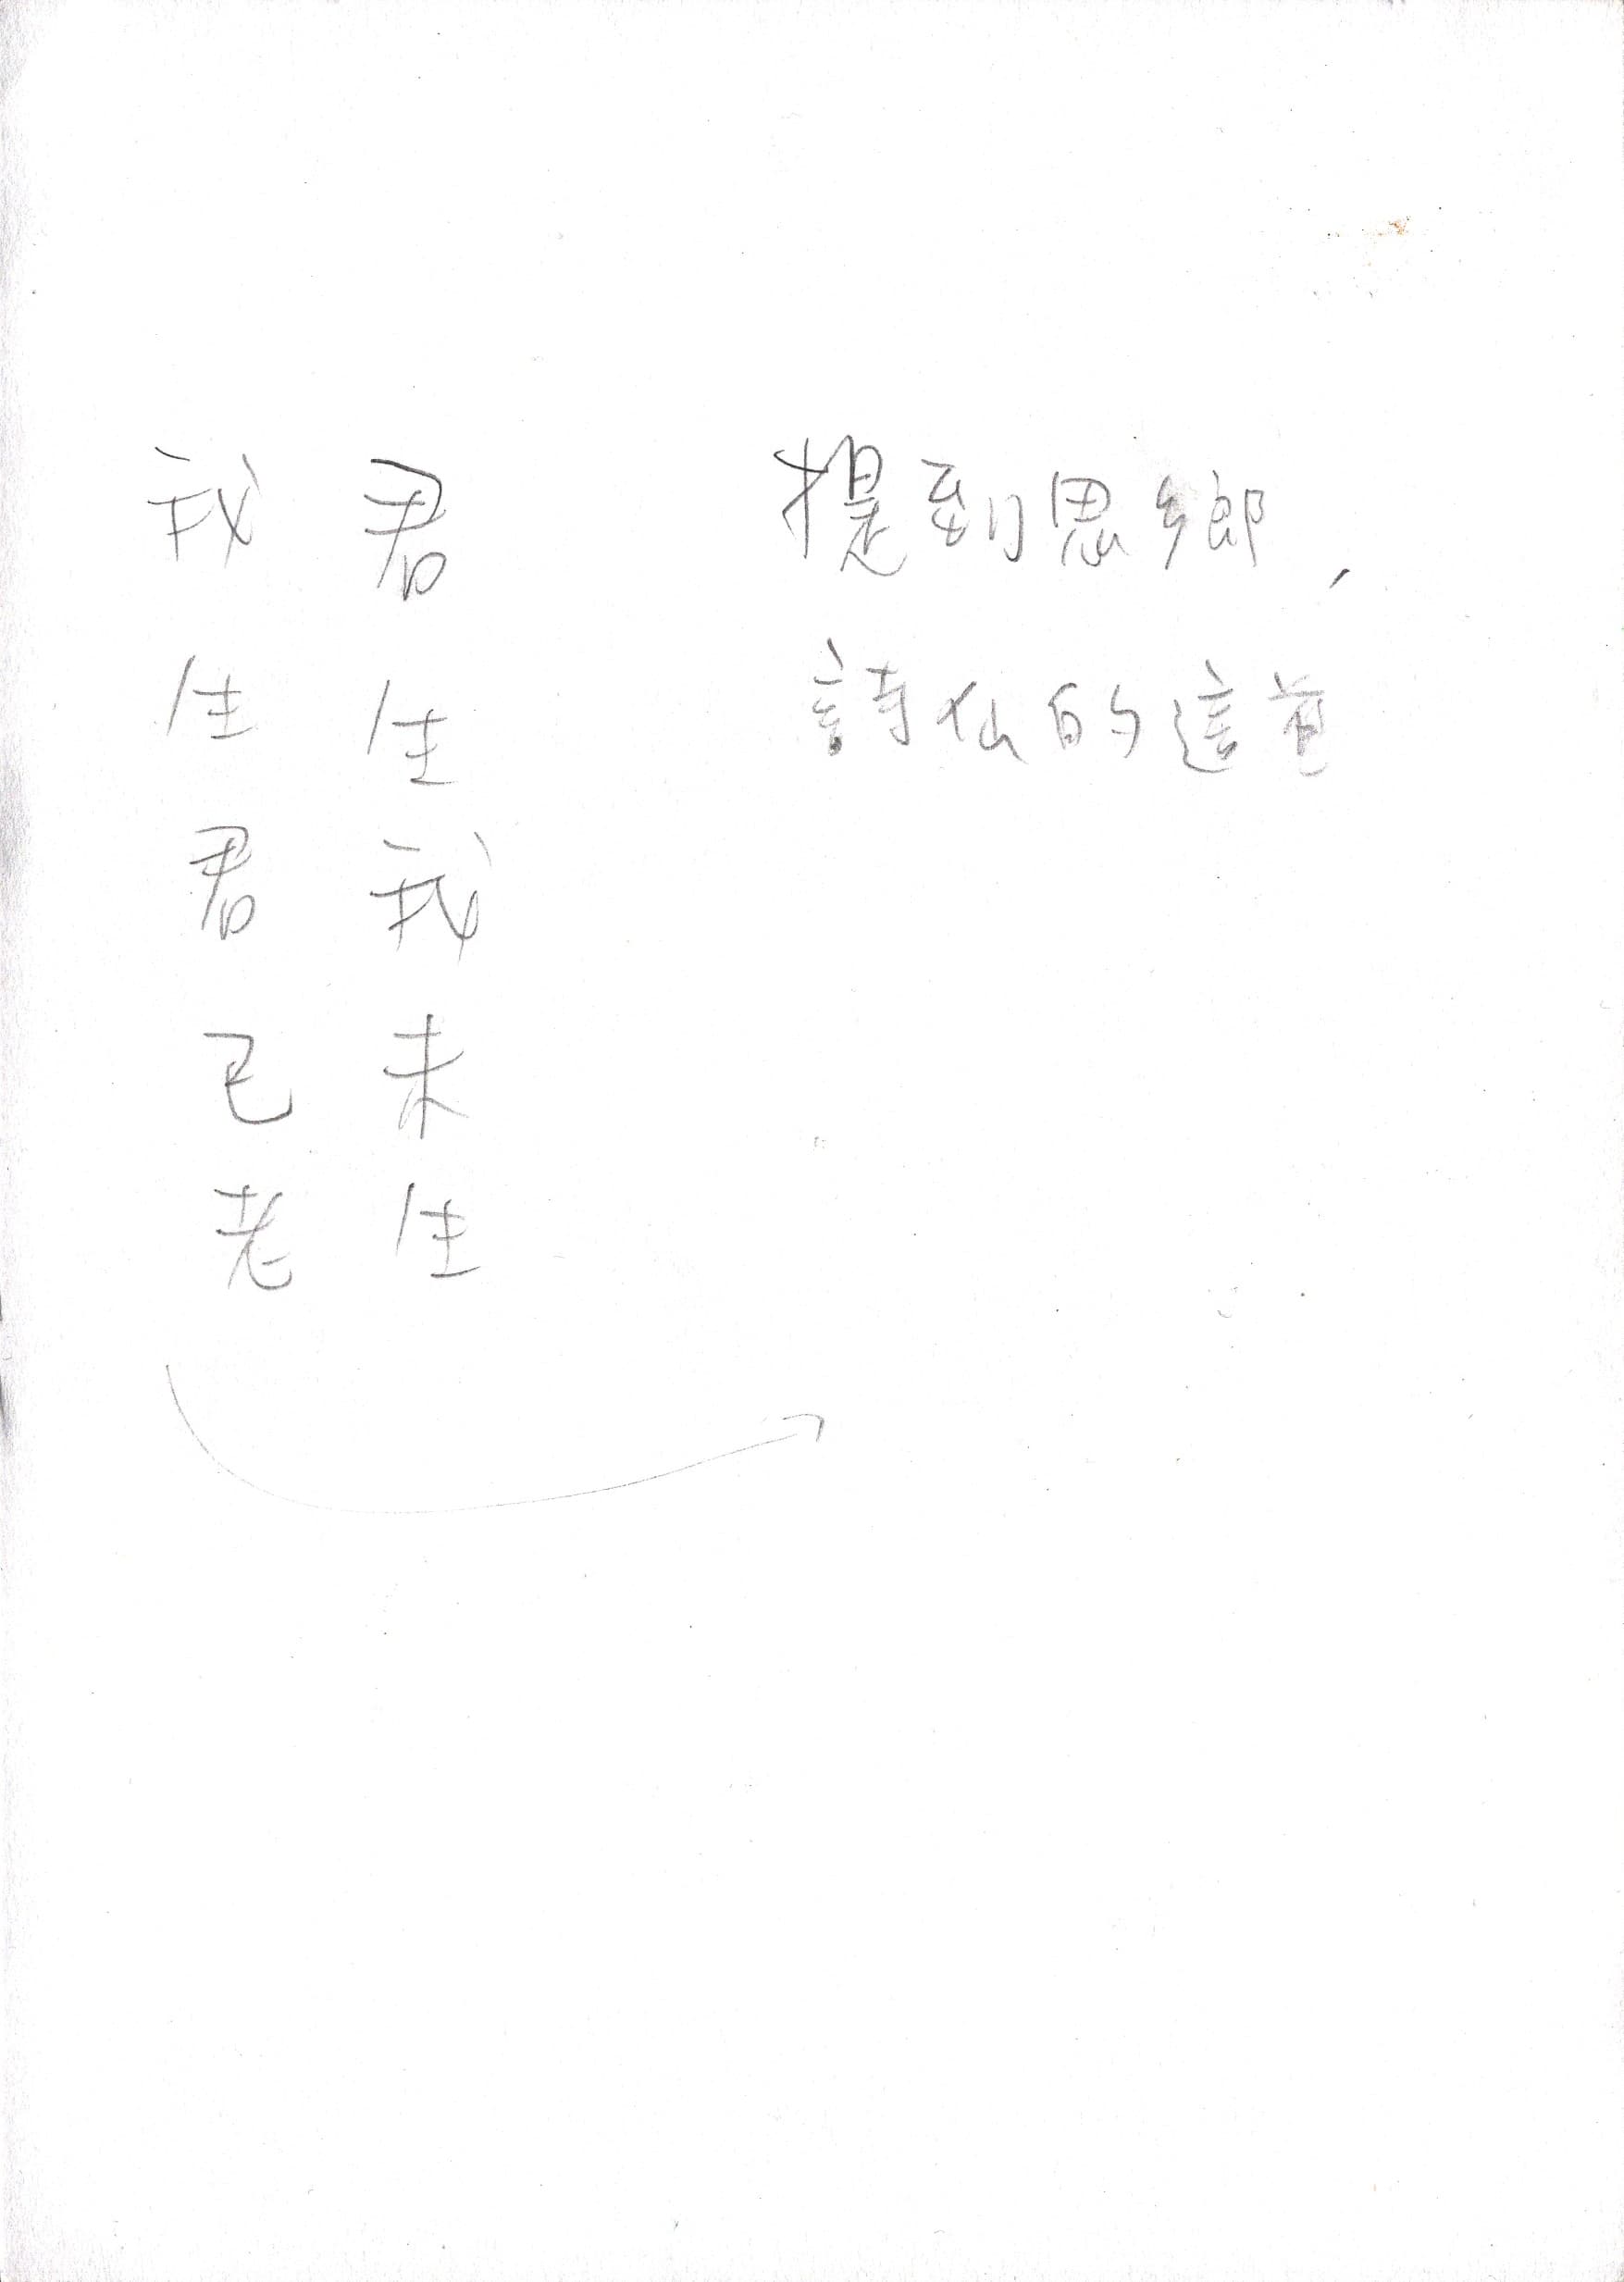 提到思鄉，
詩仙的這首
君生我未生
我生君已老